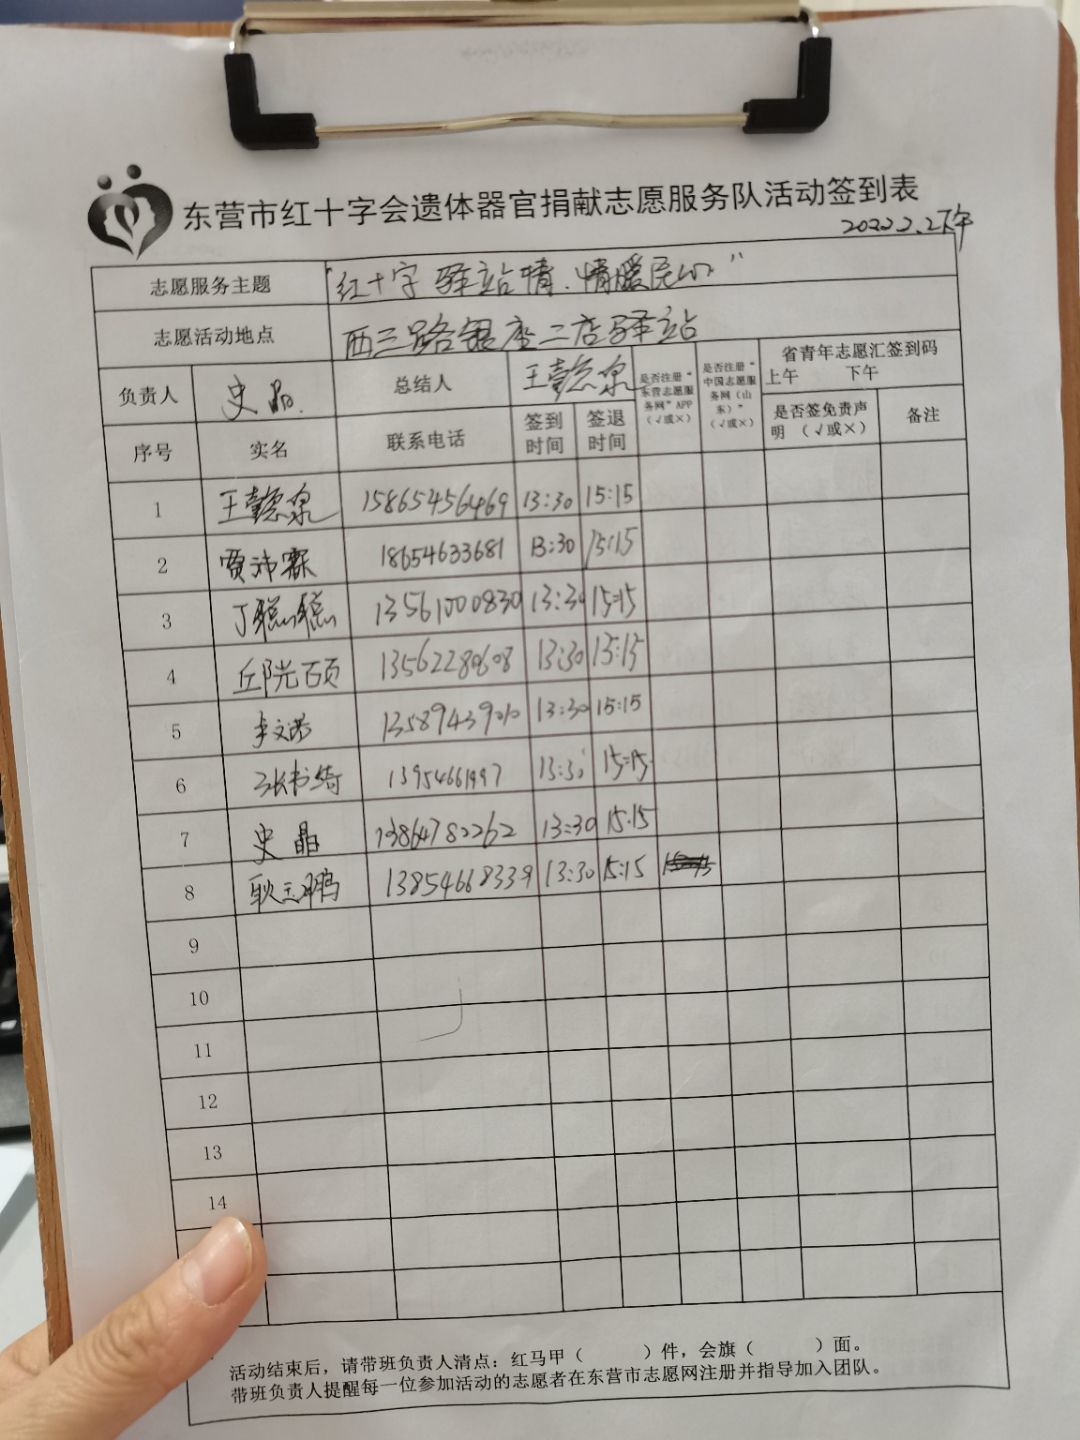 东营市红十字会遗体器官捐献志愿服务队活动签到表
2022.2.2下午
志愿服务主题 "红十字 驿站情.情暖民心"
志愿活动地点 西三路银座二店驿站
负责人 史晶. 总结人 王懿泉 是否注册“东营志愿服务网”APP（√或×） 是否注册“中国志愿服务网（山东）”（√或×） 省青年志愿汇签到码 上午 下午
序号 实名 联系电话 签到时间 签退时间 是否签免责声明 （√或×） 备注
1 王懿泉 15865456469 13:30 15:15
2 贾沛霖 18654633681 13:30 15:15
3 丁聪聪 13561000830 13:30 15:15
4 邱光硕 13562280608 13:30 15:15
5 李文 13589439010 13:30 15:15
6 张书绮 13954661997 13:30 15:15
7 史晶 13864782262 13:30 15:15
8 耿志鹏 13854668339 13:30 15:15
9
10
11
12
13
14
活动结束后，请带班负责人清点：红马甲（ ）件，会旗（ ）面。
带班负责人提醒每一位参加活动的志愿者在东营市志愿网注册并指导加入团队。